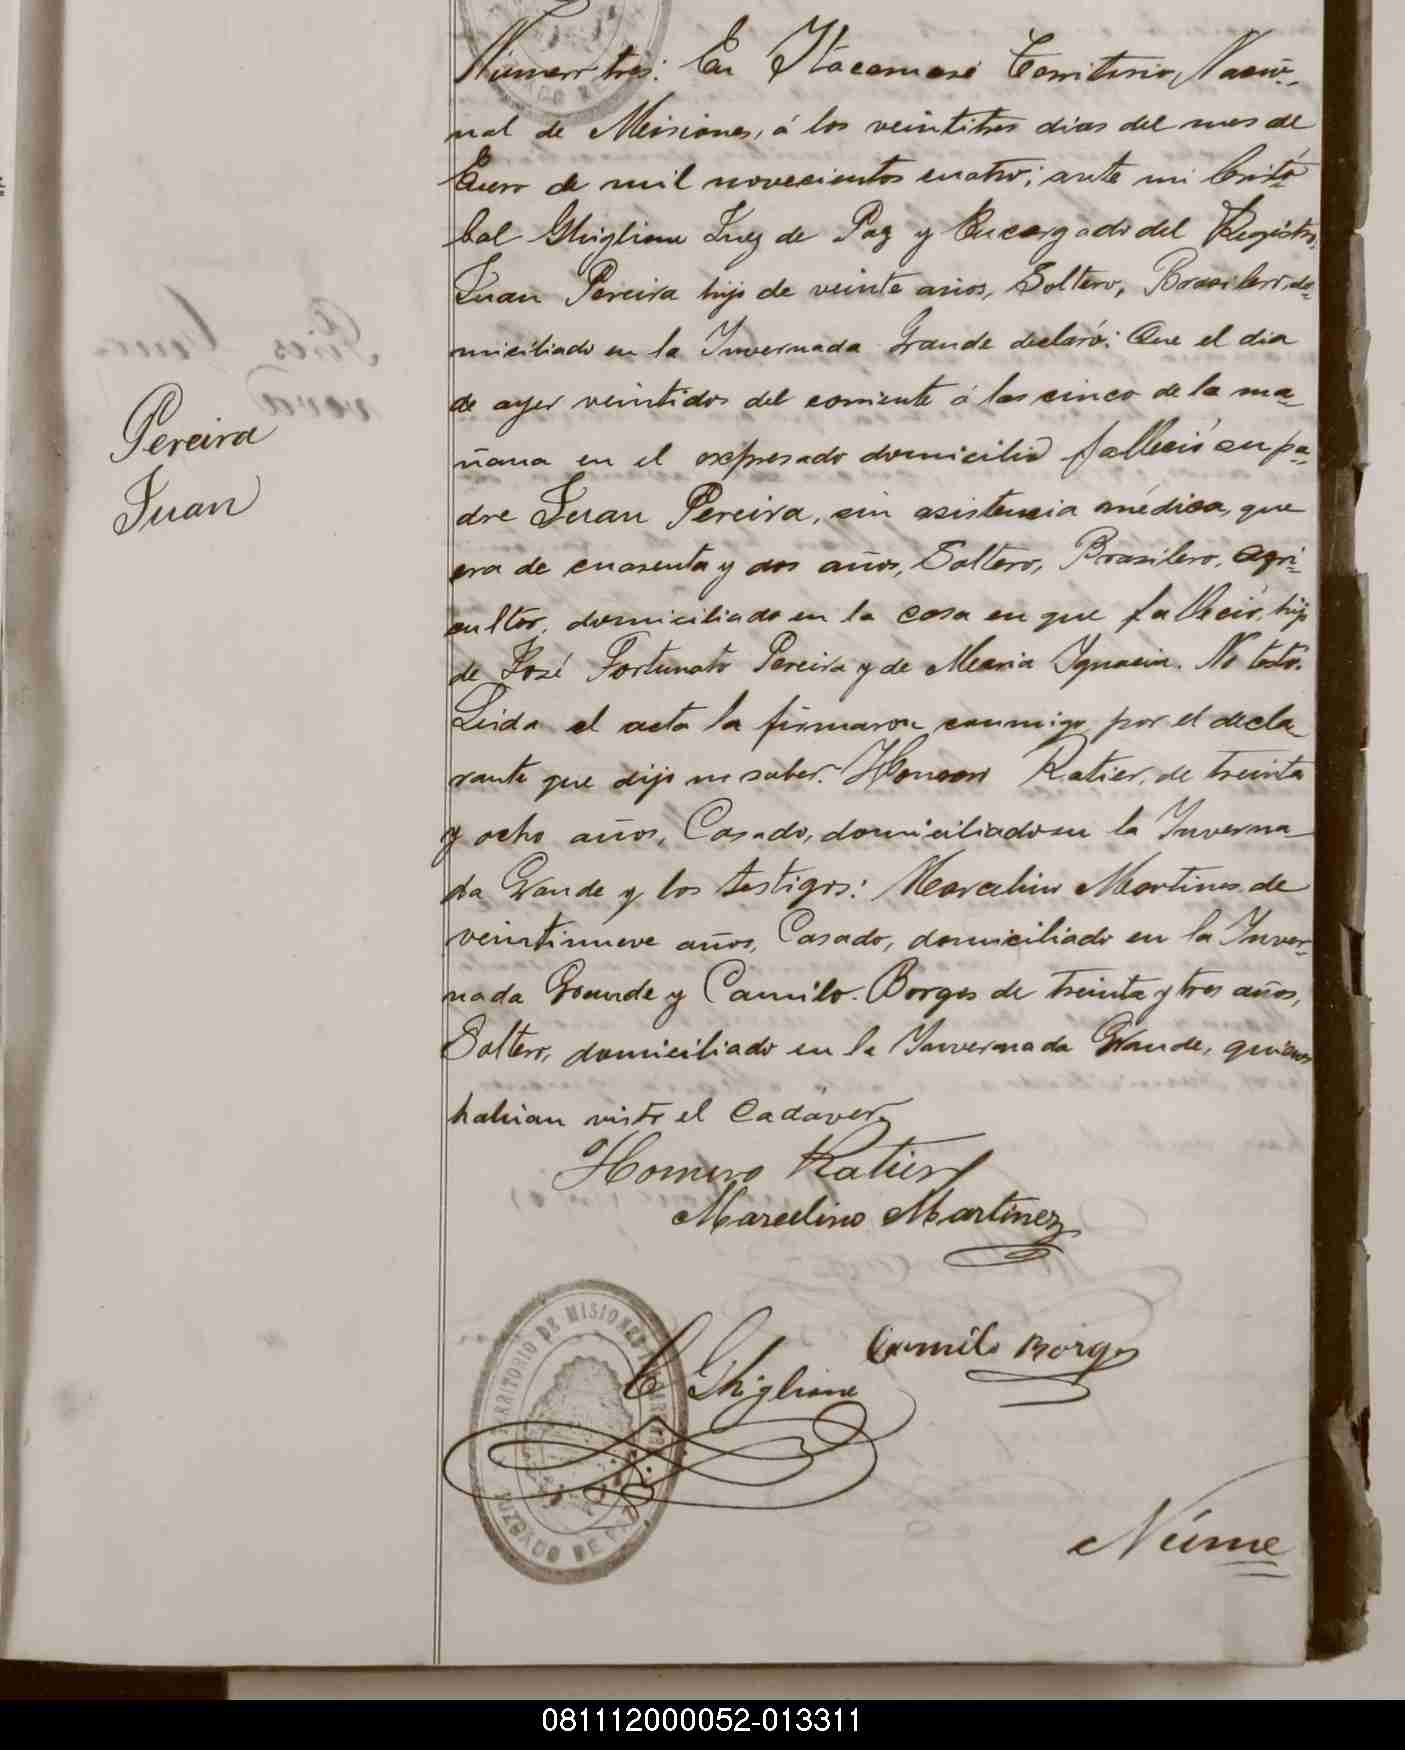 Número tres: En Itacaruaré Territorio Nacio-
nal de Misiones, á los veintitres dias del mes de
Enero de mil novecientos cuatro; ante mi Cristo-
bal Ghiglione Juez de Paz y Encargado del Registro,
Juan Pereira hijo de veinte años, Soltero, Brasilero, do-
miciliado en la Invernada Grande declaró: Que el dia
de ayer veintidos del corriente á las cinco de la ma-
ñana en el expresado domicilio falleció su pa-
dre Juan Pereira, sin asistencia médica, que
era de cuarenta y dos años, Soltero, Brasilero, agri-
cultor, domiciliado en la casa en que falleció, hijo
de José Fortunato Pereira y de Maria Ignacia. No testó.
Leida el acta la firmaron conmigo por el decla-
rante que dijo no saber. Homero Ratier, de treinta
y ocho años, Casado, domiciliado en la Inverna-
da Grande y los testigos: Marcelino Martines de
veintinueve años, Casado, domiciliado en la Inver-
nada Grande y Camilo Borges de treinta y tres años,
Soltero, domiciliado en la Invernada Grande, quienes
habian visto el cadáver.
Pereira
Juan
Homero Ratier
Marcelino Martinez
Camilo Borges
C Ghiglione
TERRITORIO DE MISIONES
JUZGADO DE PAZ
Núme
081112000052-013311